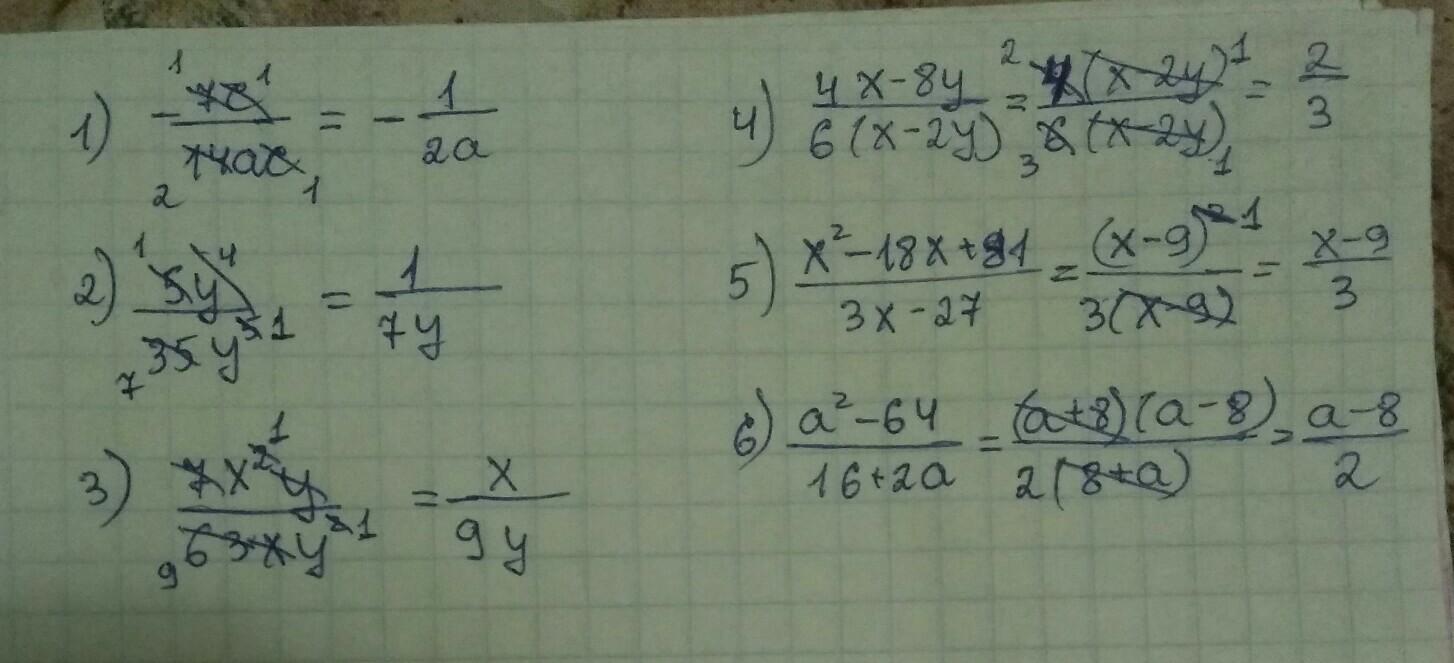 1) -7c/14ac = -1/2a
2) 5y⁴/35y⁵ = 1/7y
3) 7x²y/63xy² = x/9y
4) 4x-8y/6(x-2y) = 4(x-2y)/6(x-2y) = 2/3
5) x²-18x+81/3x-27 = (x-9)²/3(x-9) = x-9/3
6) a²-64/16+2a = (a+8)(a-8)/2(8+a) = a-8/2